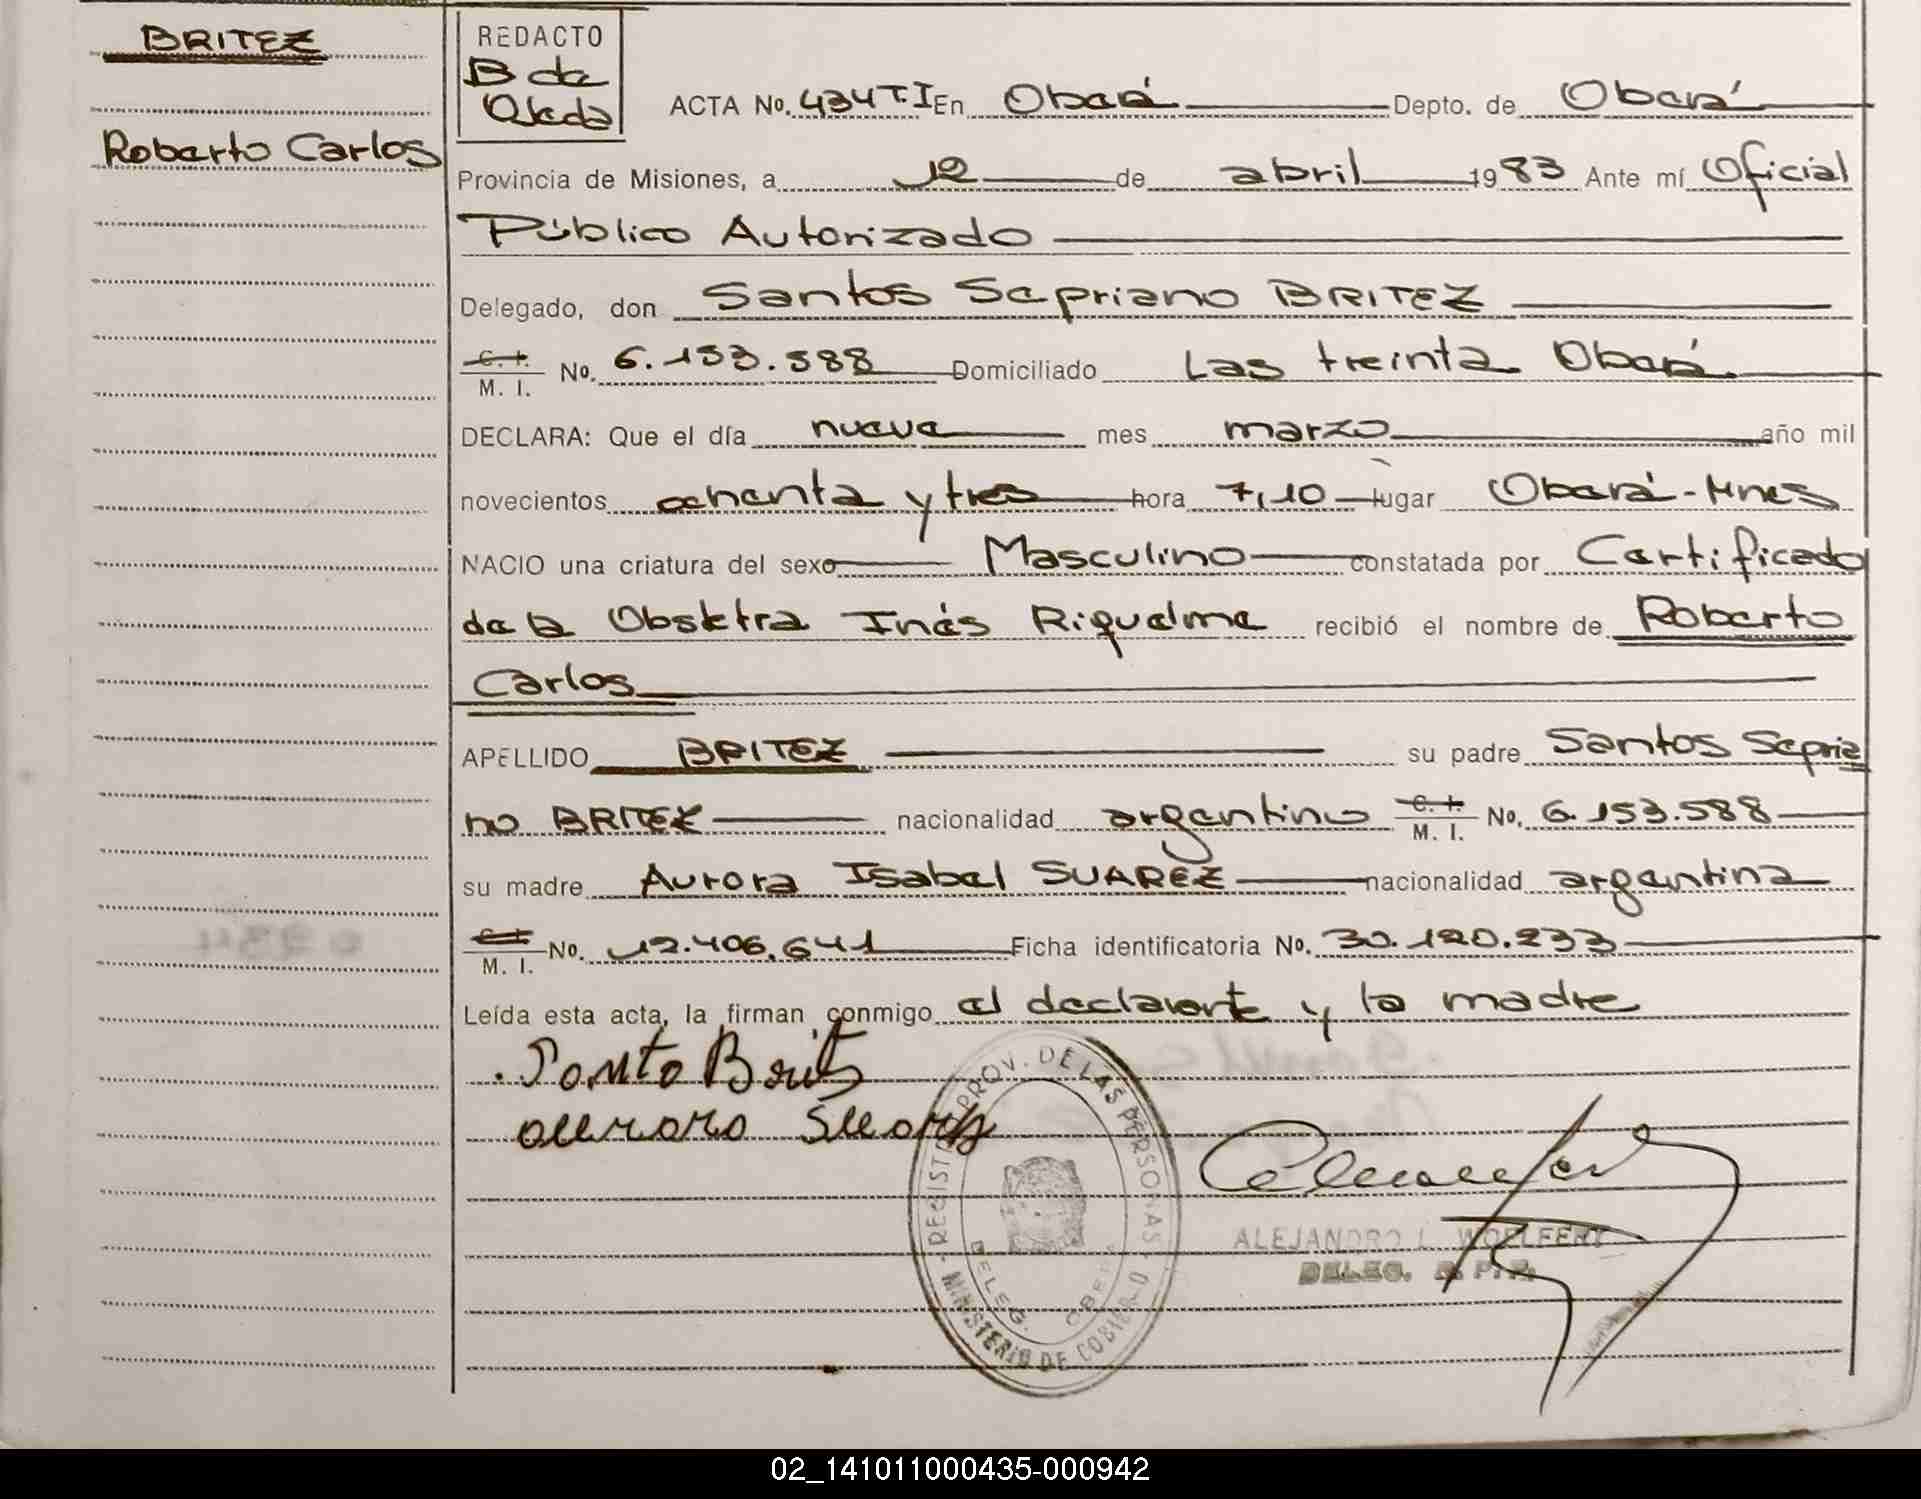 BRITEZ
Roberto Carlos
REDACTO
B de
Ojeda
ACTA No. 434 T.I En Oberá Depto. de Oberá
Provincia de Misiones, a 12 de abril 1983 Ante mí Oficial
Público Autorizado
Delegado, don Santos Sepriano BRITEZ
C. I.
M. I. No. 6.153.588 Domiciliado Las treinta Oberá
DECLARA: Que el día nueve mes marzo año mil
novecientos ochenta y tres hora 7,10 lugar Oberá-Mnes
NACIO una criatura del sexo Masculino constatada por Certificado
de la Obstetra Inés Riquelme recibió el nombre de Roberto
Carlos
APELLIDO BRITEZ su padre Santos Sepria
no BRITEZ nacionalidad argentino C. I. M. I. No. 6.153.588
su madre Aurora Isabel SUAREZ nacionalidad argentina
C. I.
M. I. No. 12.406.641 Ficha identificatoria No. 30.120.233
Leída esta acta, la firman conmigo el declarante y la madre
Santo Britz
aurora Suarez
REGISTRO PROV. DE LAS PERSONAS
MINISTERIO DE GOBIERNO
DELEG. OBERA
ALEJANDRO L. WOELFERT
DELEG. R. P. P.
02_141011000435-000942